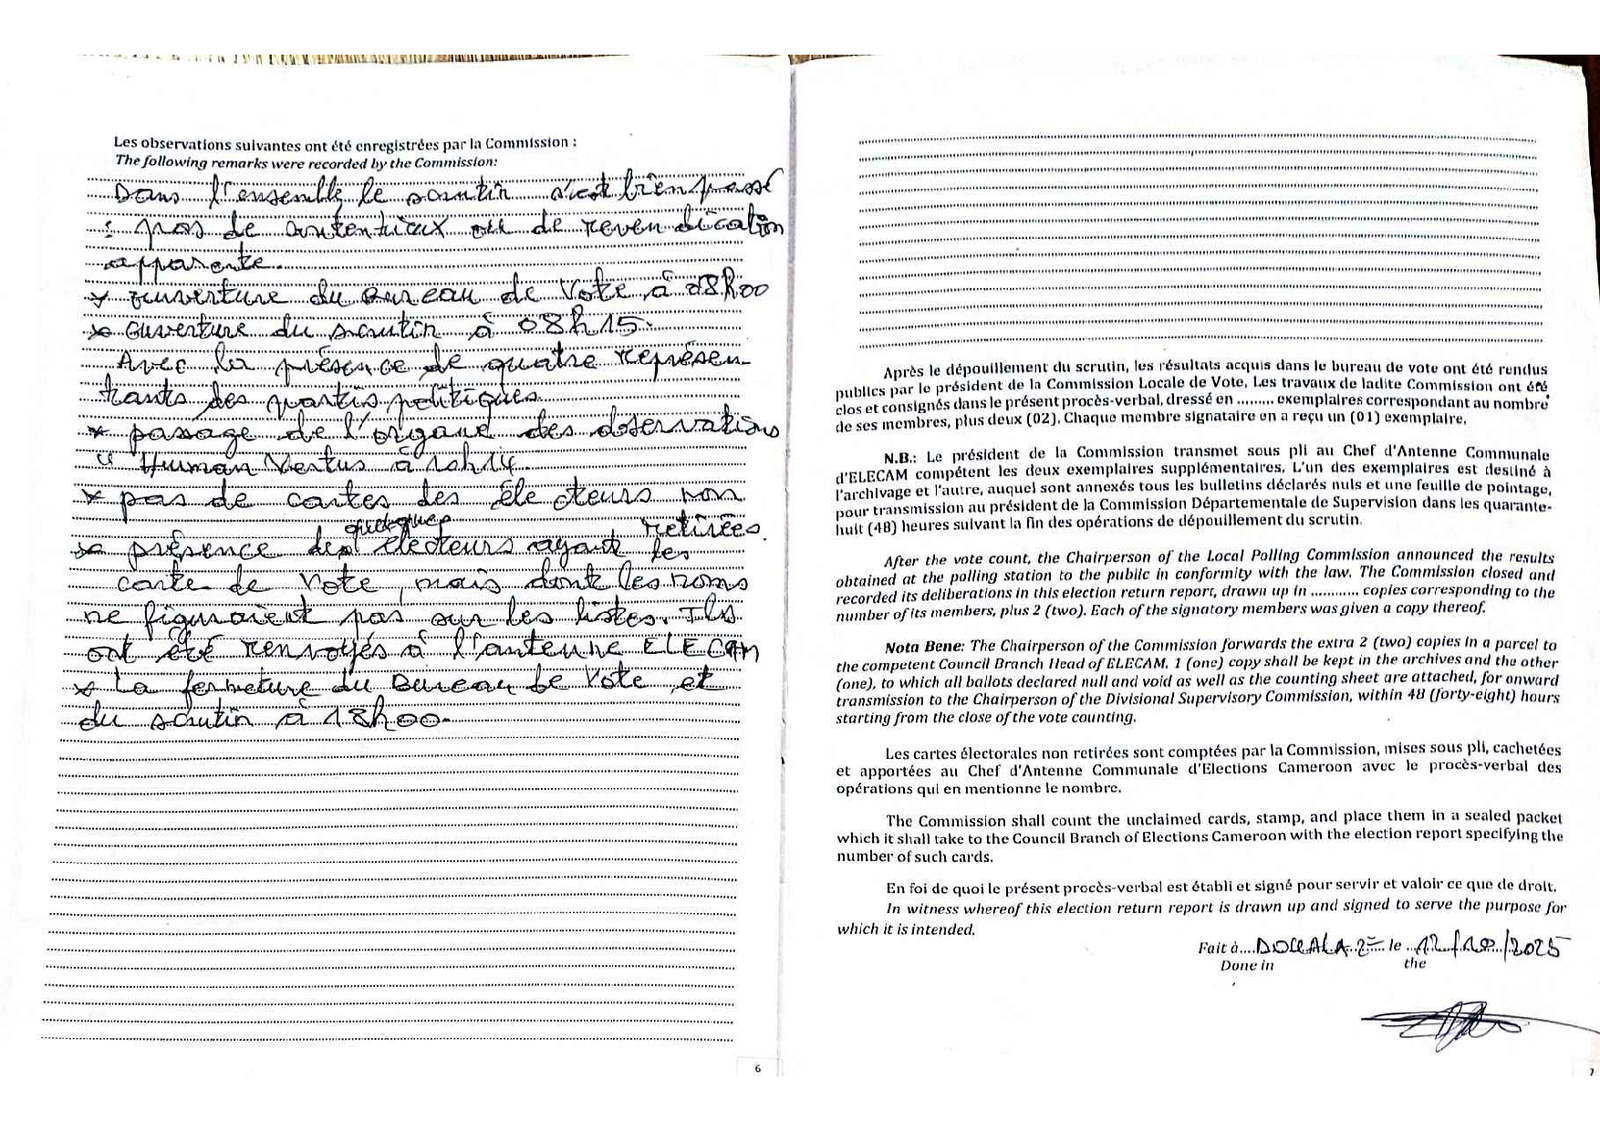 Les observations suivantes ont été enregistrées par la Commission :
The following remarks were recorded by the Commission:
Dans l'ensemble le scrutin s'est bien passé
: pas de contentieux ou de revendication
apparente.
* ouverture du Bureau de Vote à 08h00
* ouverture du scrutin à 08h15.
Avec la présence de quatre représen
tants des partis politiques
* passage de l'organe des observations
" Human Vertus à 10h14.
* pas de cartes des électeurs non
retirées.
* présence des quelques électeurs ayant les
carte de vote, mais dont les noms
ne figuraient pas sur les listes. Ils
ont été renvoyés à l'antenne ELECAM
* La fermeture du Bureau de Vote et
du scrutin à 18h00.
6
Après le dépouillement du scrutin, les résultats acquis dans le bureau de vote ont été rendus
publics par le président de la Commission Locale de Vote, Les travaux de ladite Commission ont été
clos et consignés dans le présent procès-verbal, dressé en ......... exemplaires correspondant au nombre
de ses membres, plus deux (02). Chaque membre signataire en a reçu un (01) exemplaire.
N.B.: Le président de la Commission transmet sous pli au Chef d'Antenne Communale
d'ELECAM compétent les deux exemplaires supplémentaires. L'un des exemplaires est destiné à
l'archivage et l'autre, auquel sont annexés tous les bulletins déclarés nuls et une feuille de pointage,
pour transmission au président de la Commission Départementale de Supervision dans les quarante-
huit (48) heures suivant la fin des opérations de dépouillement du scrutin.
After the vote count, the Chairperson of the Local Polling Commission announced the results
obtained at the polling station to the public in conformity with the law. The Commission closed and
recorded its deliberations in this election return report, drawn up in ............ copies corresponding to the
number of its members, plus 2 (two). Each of the signatory members was given a copy thereof.
Nota Bene: The Chairperson of the Commission forwards the extra 2 (two) copies in a parcel to
the competent Council Branch Head of ELECAM. 1 (one) copy shall be kept in the archives and the other
(one), to which all ballots declared null and void as well as the counting sheet are attached, for onward
transmission to the Chairperson of the Divisional Supervisory Commission, within 48 (forty-eight) hours
starting from the close of the vote counting.
Les cartes électorales non retirées sont comptées par la Commission, mises sous pli, cachetées
et apportées au Chef d'Antenne Communale d'Elections Cameroon avec le procès-verbal des
opérations qui en mentionne le nombre.
The Commission shall count the unclaimed cards, stamp, and place them in a sealed packet
which it shall take to the Council Branch of Elections Cameroon with the election report specifying the
number of such cards.
En foi de quoi le présent procès-verbal est établi et signé pour servir et valoir ce que de droit.
In witness whereof this election return report is drawn up and signed to serve the purpose for
which it is intended.
Fait à....DOUALA 2e le ..12/10/2025
Done in the
7